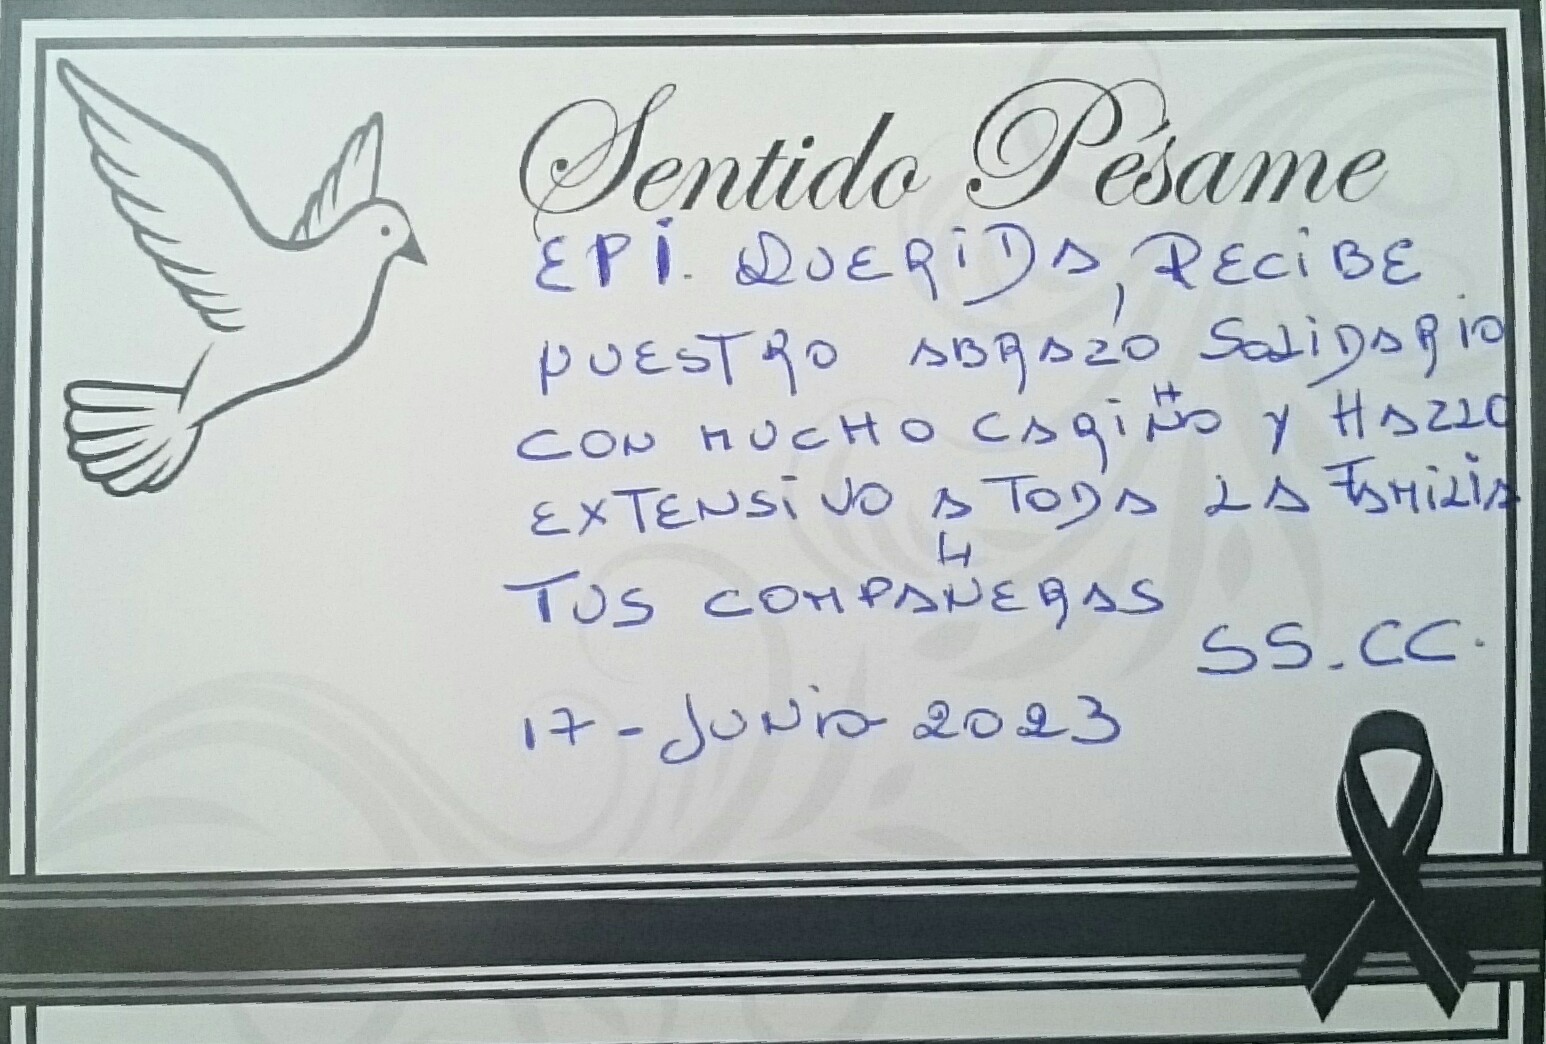 Sentido Pésame
EPI. QUERIDA, RECIBE
NUESTRO ABRAZO SOLIDARIO
CON MUCHO CARIÑO Y HAZLO
EXTENSIVO A TODA LA FAMILIA
TUS COMPAÑERAS
SS.CC.
17-JUNIO 2023